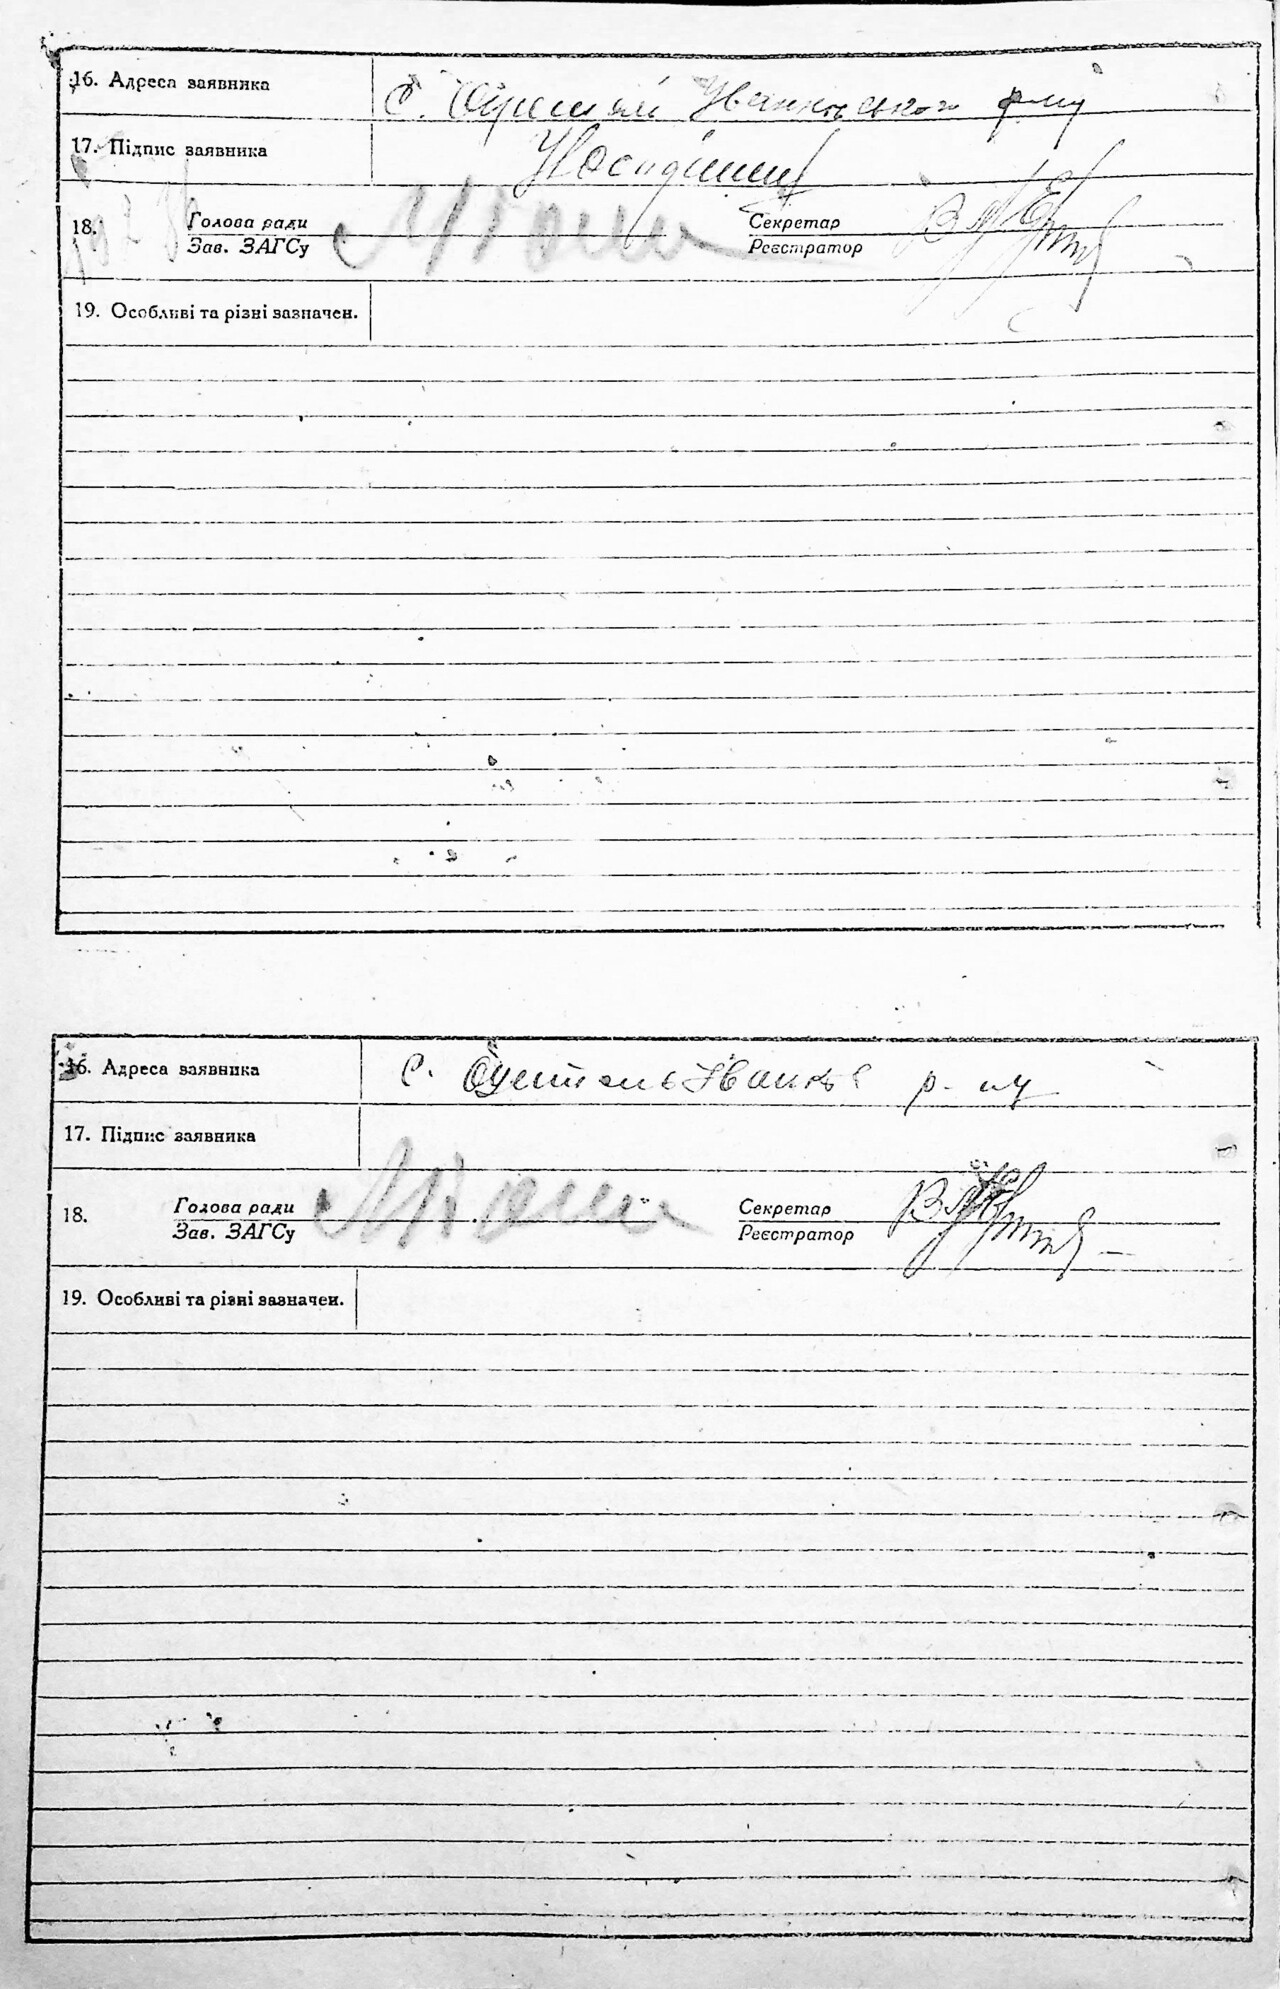 16. Адреса заявника С. Іванківського р-ну
17. Підпис заявника
18. Голова ради Секретар
Зав. ЗАГСу Реєстратор
19. Особливі та різні зазначен.
16. Адреса заявника С. Іванків р-ну
17. Підпис заявника
18. Голова ради Секретар
Зав. ЗАГСу Реєстратор
19. Особливі та різні зазначен.